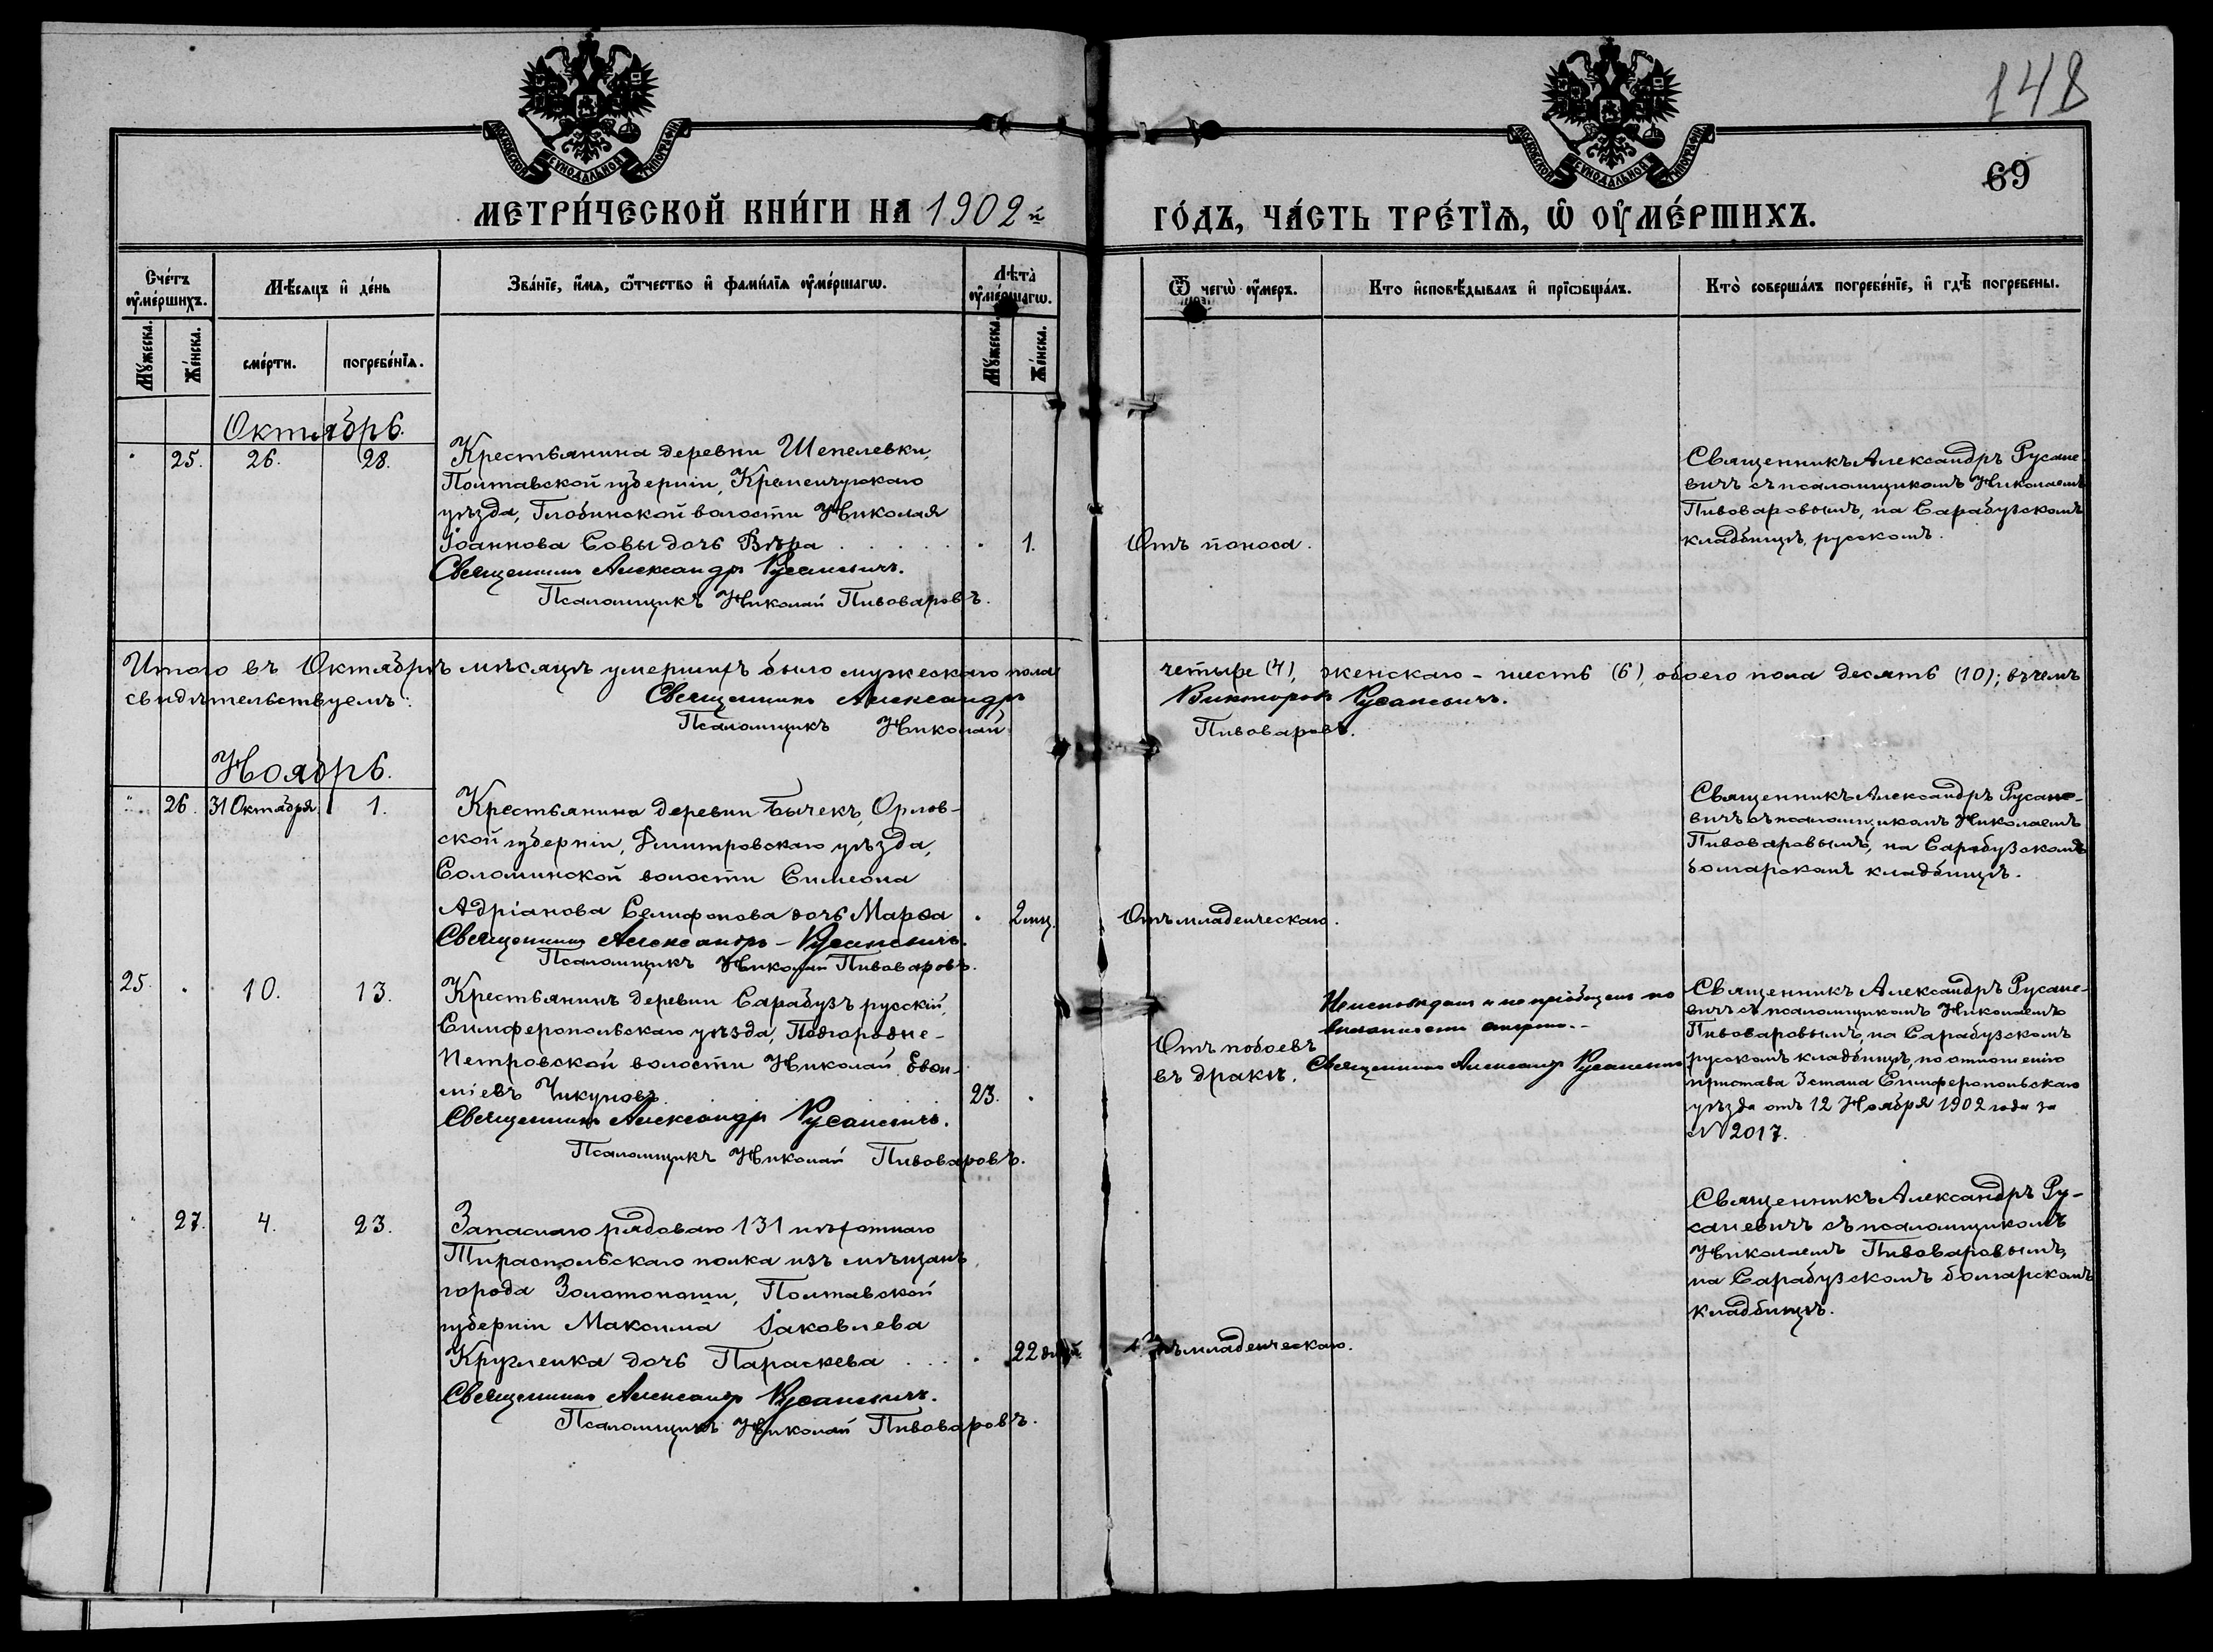 148
69
МОСКОВСКОЙ СѴНОДАЛЬНОЙ ТИПОГРАФІИ
МОСКОВСКОЙ СѴНОДАЛЬНОЙ ТИПОГРАФІИ
МЕТРИ́ЧЕСКОЙ КНИ́ГИ НА 1902й
ГО́ДЪ, ЧА́СТЬ ТРЕ́ТЇѦ, Ѡ҆ ОУ҆МЕ́РШИХЪ.
Сче́тъ оу҆ме́ршихъ.
Мꙋ́жеска.
Же́нска.
Мѣ́сѧцъ и҆ де́нь
сме́рти.
погребе́нїѧ.
Зва́нїе, и҆́мѧ, ѻ҆́тчество и҆ фами́лїѧ оу҆ме́ршагѡ.
Лѣта̀ оу҆ме́ршагѡ.
Мꙋ́жеска.
Же́нска.
Ѿ чегѡ̀ оу҆́меръ.
Кто и҆сповѣ́дывалъ и҆ прїѡбща́лъ.
Кто̀ соверша́лъ погребе́нїе, и҆ гдѣ̀ погребены.
Октябрь.
25. 26. 28.
Крестьянина деревни Шепелевки,
Полтавской губерніи, Кременчугскаго
уѣзда, Глобинской волости Николая
Іоаннова Совы дочь Вѣра . . . . . . 1.
Священникъ Александръ Русаневичъ.
Псаломщикъ Николай Пивоваровъ.
Отъ поноса.
Священникъ Александръ Русане
вичъ съ псаломщикомъ Николаемъ
Пивоваровымъ, на Сарабузскомъ
кладбищѣ, русскомъ.
Итого въ Октябрѣ мѣсяцѣ умершихъ было мужескаго пола четыре (4), женскаго - шесть (6), обоего пола десять (10); въ чемъ
свидѣтельствуемъ: Священникъ Александръ Викторовъ Русаневичъ.
Псаломщикъ Николай Пивоваровъ.
Ноябрь.
26. 31 Октября. 1.
Крестьянина деревни Бычекъ, Орлов-
ской губерніи, Дмитровскаго уѣзда,
Соломинской волости Симеона
Адріанова Селифонова дочь Марѳа . 2 мц.
Священникъ Александръ Русаневичъ.
Псаломщикъ Николай Пивоваровъ.
Отъ младенческаго.
Священникъ Александръ Русане-
вичъ съ псаломщикомъ Николаемъ
Пивоваровымъ, на Сарабузскомъ
болгарскомъ кладбищѣ.
25. . 10. 13.
Крестьянинъ деревни Сарабузъ русскій,
Симферопольскаго уѣзда, Подгородне-
Петровской волости Николай Евѳи-
міевъ Чикуновъ. 23. .
Священникъ Александръ Русаневичъ.
Псаломщикъ Николай Пивоваровъ.
Отъ побоевъ
въ дракѣ.
Не исповѣданъ и не пріобщенъ по
внезапности смерти.
Священникъ Александръ Русаневичъ
Священникъ Александръ Русане-
вичъ съ псаломщикомъ Николаемъ
Пивоваровымъ, на Сарабузскомъ
русскомъ кладбищѣ, по отношенію
пристава 3 стана Симферопольскаго
уѣзда отъ 12 Ноября 1902 года за
№ 2017.
27. 4. 23.
Запаснаго рядоваго 131 пѣхотнаго
Тираспольскаго полка изъ мѣщанъ
города Золотоноши, Полтавской
губерніи Максима Іаковлева
Кругленка дочь Параскева . . . . 22 дней
Священникъ Александръ Русаневичъ.
Псаломщикъ Николай Пивоваровъ.
Отъ младенческаго.
Священникъ Александръ Ру-
саневичъ съ псаломщикомъ
Николаемъ Пивоваровымъ,
на Сарабузскомъ болгарскомъ
кладбищѣ.